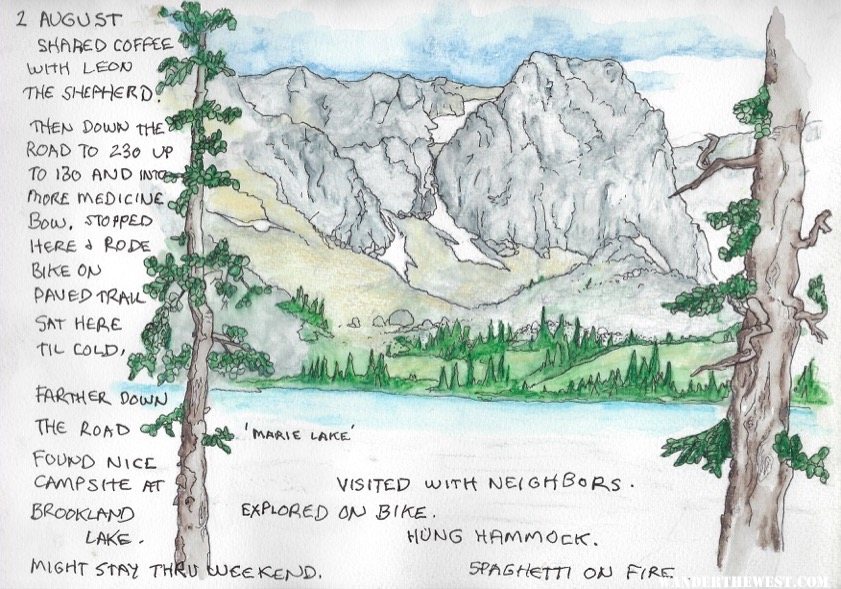 2 AUGUST
SHARED COFFEE
WITH LEON
THE SHEPHERD.
THEN DOWN THE
ROAD TO 230 UP
TO 130 AND INTO
MORE MEDICINE
BOW. STOPPED
HERE & RODE
BIKE ON
PAVED TRAIL
SAT HERE
TIL COLD.
FARTHER DOWN
THE ROAD
'MARIE LAKE'
FOUND NICE
CAMPSITE AT
BROOKLAND
LAKE.
MIGHT STAY THRU WEEKEND.
VISITED WITH NEIGHBORS.
EXPLORED ON BIKE.
HUNG HAMMOCK.
SPAGHETTI ON FIRE
WANDERTHEWEST.COM